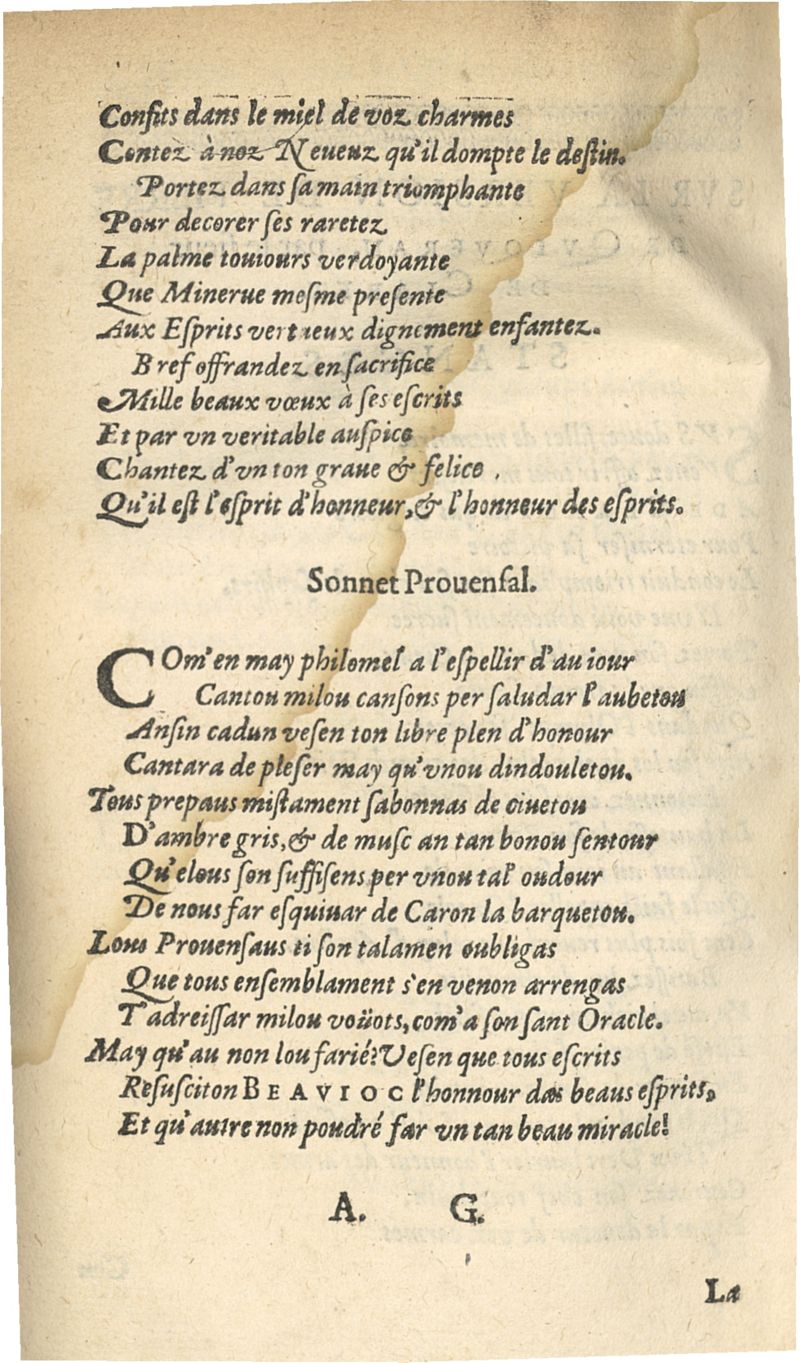 Confits dans le miel de voz charmes
Contez à noz Neueuz qu'il dompte le deſtin.
Portez dans ſa main triomphante
Pour decorer ſes raretez
La palme touiours verdoyante
Que Minerue meſme preſente
Aux Eſprits vertueux dignement enfantez.
Bref offrandez en ſacrifice
Mille beaux vœux à ſes eſcrits
Et par vn veritable auſpice
Chantez d'vn ton graue & felice,
Qu'il eſt l'eſprit d'honneur, & l'honneur des eſprits.
Sonnet Prouenſal.
COm'en may philomel a l'eſpellir d'au iour
Cantou milou canſons per ſaludar l'aubetou
Anſin cadun veſen ton libre plen d'honour
Cantara de pleſer may qu'vnou dindouletou.
Tous prepaus miſtament ſabonnas de ciuetou
D'ambre gris, & de muſc an tan bonou ſentour
Qu'elous ſon ſuffiſens per vnou tal' oudour
De nous far eſquiuar de Caron la barquetou.
Lous Prouenſaus ti ſon talamen oubligas
Que tous enſemblament s'en venon arrengas
T'adreiſſar milou voüots, com'a ſon ſant Oracle.
May qu'au non lou farié? Veſen que tous eſcrits
Reſuſciton BEAVIOC l'honnour das beaus eſprits,
Et qu'autre non poudré far vn tan beau miracle!
A. G.
La